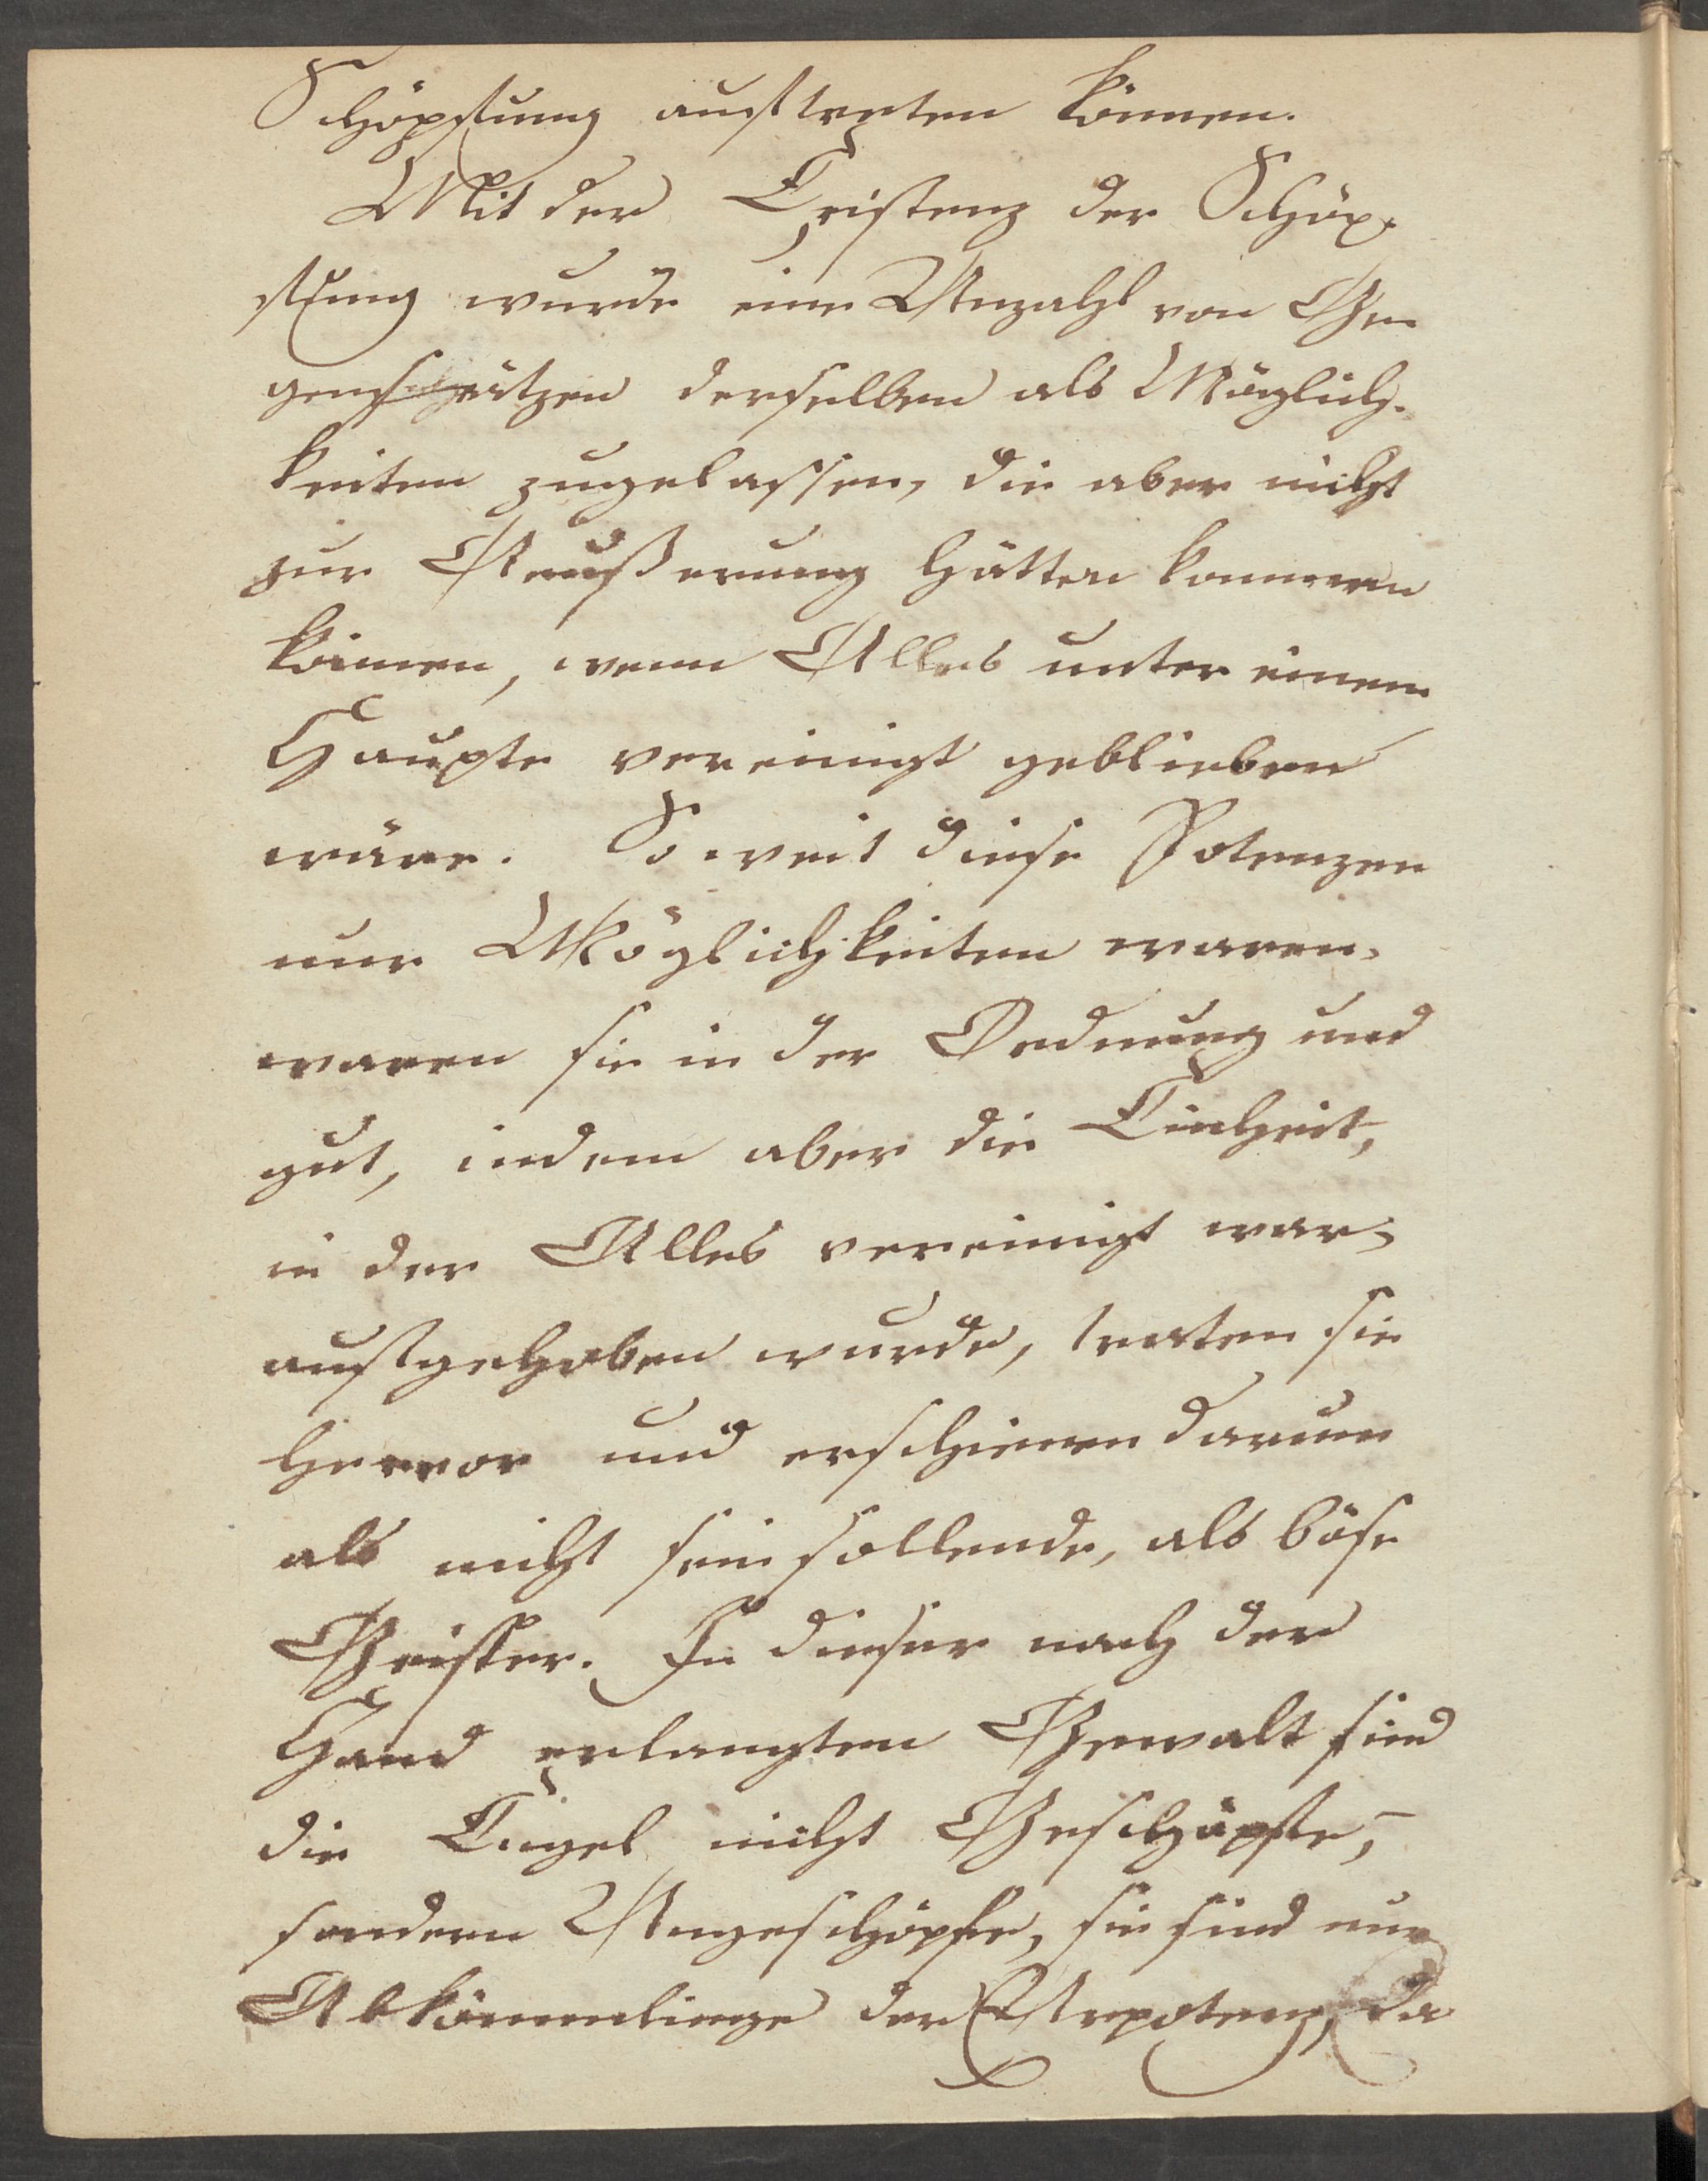 Schöpfung auftreten können.
Mit der Existenz der Schöp-
fung wurde eine Unzahl von Ge-
gensätzen derselben als Möglich-
keiten zugelassen, die aber nicht
zur Aeußerung hätten kommen
können, wenn Alles unter einem
Haupte vereinigt geblieben
wäre. So weit diese Potenzen
nur Möglichkeiten waren,
waren sie in der Ordnung und
gut, indem aber die Einheit,
in der Alles vereinigt war,
aufgehoben wurde, traten sie
hervor und erschienen darum
als nicht sein sollende, als böse
Geister. In dieser nach der
Hand erlangten Gewalt sind
die Engel nicht Geschöpfe,
sondern Ungeschöpfe, sie sind nur
Abkömmlinge der Urpotenz, da